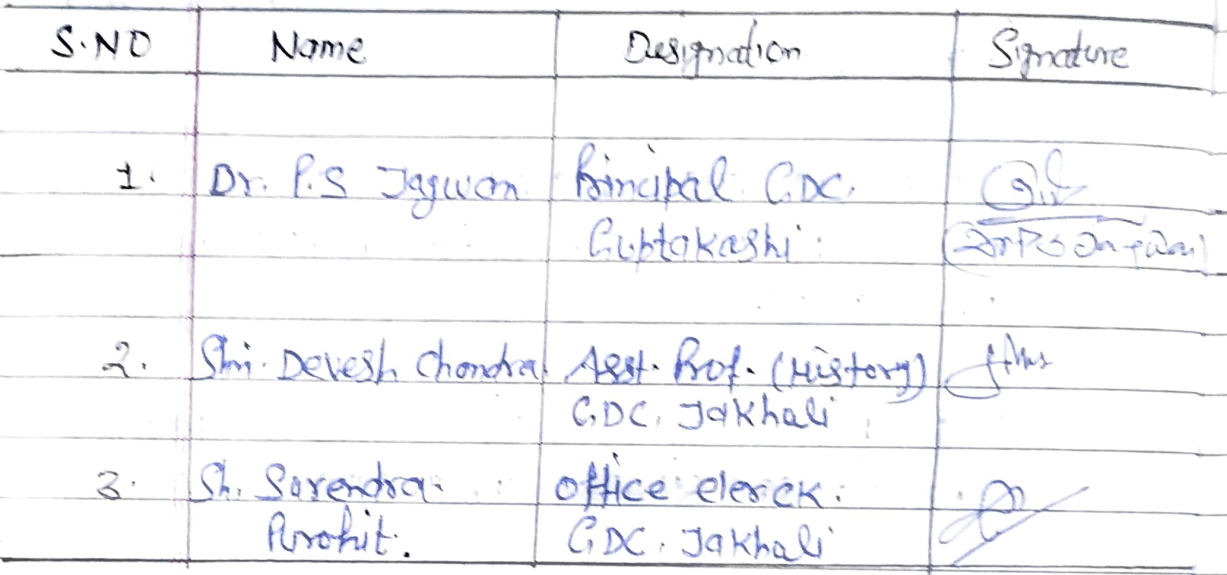 S.NO Name Designation Signature
1. Dr. P.S Jagwan Principal G.DC.
Guptakashi
2. Shri. Devesh Chandra Asst. Prof. (History)
G.DC. Jakhali
3. Sh. Surendra office clerck.
Purohit. G.DC. Jakhali